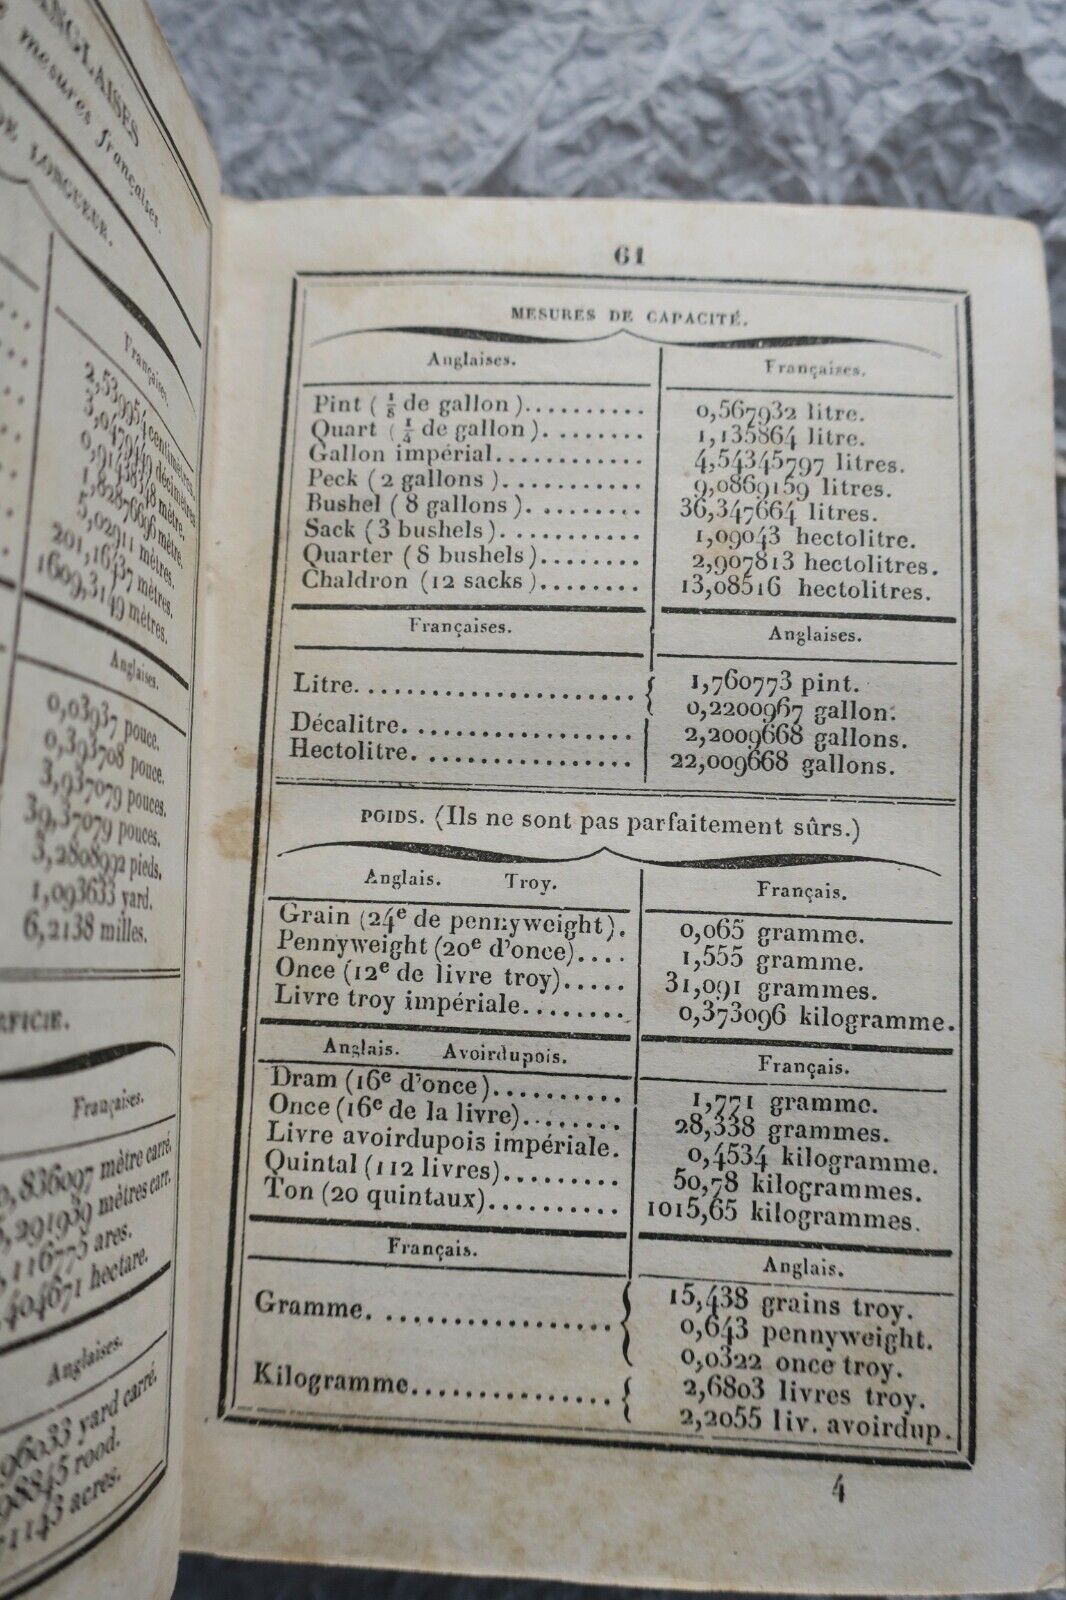 ANGLAISES
mesures françaises.
DE LONGUEUR.
Françaises.
2,539954 centimètres.
3,0479449 décimètres.
0,91438348 mètre.
1,82876696 mètre.
5,02911 mètres.
201,16437 mètres.
1609,3149 mètres.
Anglaises.
0,03937 pouce.
0,393708 pouce.
3,937079 pouces.
39,37079 pouces.
3,2808992 pieds.
1,093633 yard.
6,2138 milles.
Françaises.
0,836097 mètre carré.
291939 mètres carr.
116775 ares.
404671 hectare.
Anglaises.
96033 yard carré.
98845 rood.
71143 acres.
61
MESURES DE CAPACITÉ.
Anglaises. Françaises.
Pint (1/8 de gallon).......... 0,567932 litre.
Quart (1/4 de gallon)........ 1,135864 litre.
Gallon impérial............ 4,54345797 litres.
Peck (2 gallons)........... 9,0869159 litres.
Bushel (8 gallons)......... 36,347664 litres.
Sack (3 bushels)........... 1,09043 hectolitre.
Quarter (8 bushels)........ 2,907813 hectolitres.
Chaldron (12 sacks)........ 13,08516 hectolitres.
Françaises. Anglaises.
Litre..................... { 1,760773 pint.
0,2200967 gallon.
Décalitre.................. 2,2009668 gallons.
Hectolitre................. 22,009668 gallons.
POIDS. (Ils ne sont pas parfaitement sûrs.)
Anglais. Troy. Français.
Grain (24e de pennyweight). 0,065 gramme.
Pennyweight (20e d'once).... 1,555 gramme.
Once (12e de livre troy)..... 31,091 grammes.
Livre troy impériale........ 0,373096 kilogramme.
Anglais. Avoirdupois. Français.
Dram (16e d'once).......... 1,771 gramme.
Once (16e de la livre)........ 28,338 grammes.
Livre avoirdupois impériale. 0,4534 kilogramme.
Quintal (112 livres)......... 50,78 kilogrammes.
Ton (20 quintaux).......... 1015,65 kilogrammes.
Français. Anglais.
Gramme. ................. { 15,438 grains troy.
0,643 pennyweight.
0,0322 once troy.
Kilogramme............... { 2,6803 livres troy.
2,2055 liv. avoirdup.
4